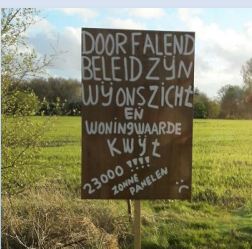 DOOR FALEND
BELEID ZYN
WY ONS ZICHT
EN
WONINGWAARDE
KWYT
23000 !!!!
ZONNE
PANELEN